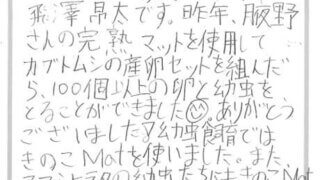 澤昂太です。昨年、腋野
さんの完熟マットを使用して
カブトムシの産卵セットを組んだ
ら、100個以上の卵と幼虫を
とることができました ありがとう
ございました又幼虫飼育では
きのこMatを使いました。また、
の幼虫たちにもきのこMat